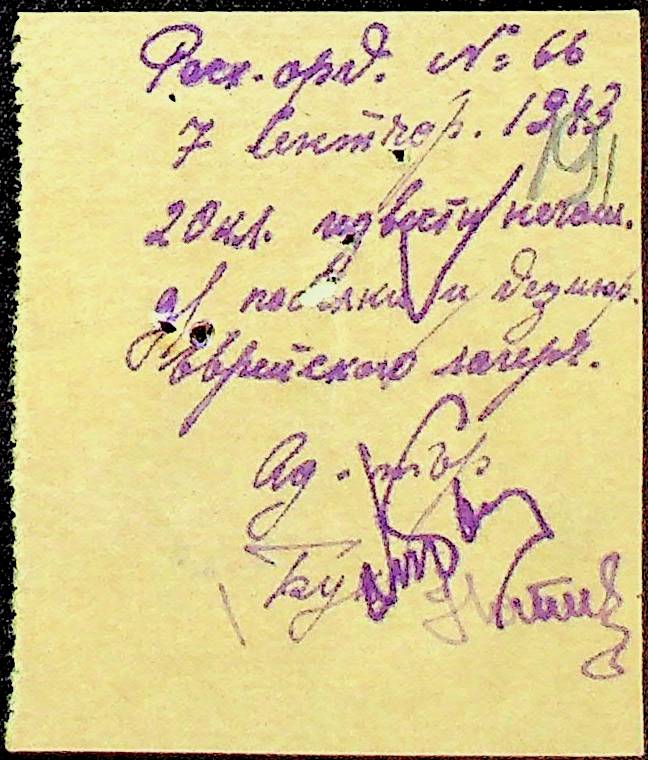 Расх. орд. № 66
7 Сентябр. 1943
191
20 кл. извести негаш.
для побелки и дезинф.
Еврейского лагеря.
Ад.
Бух